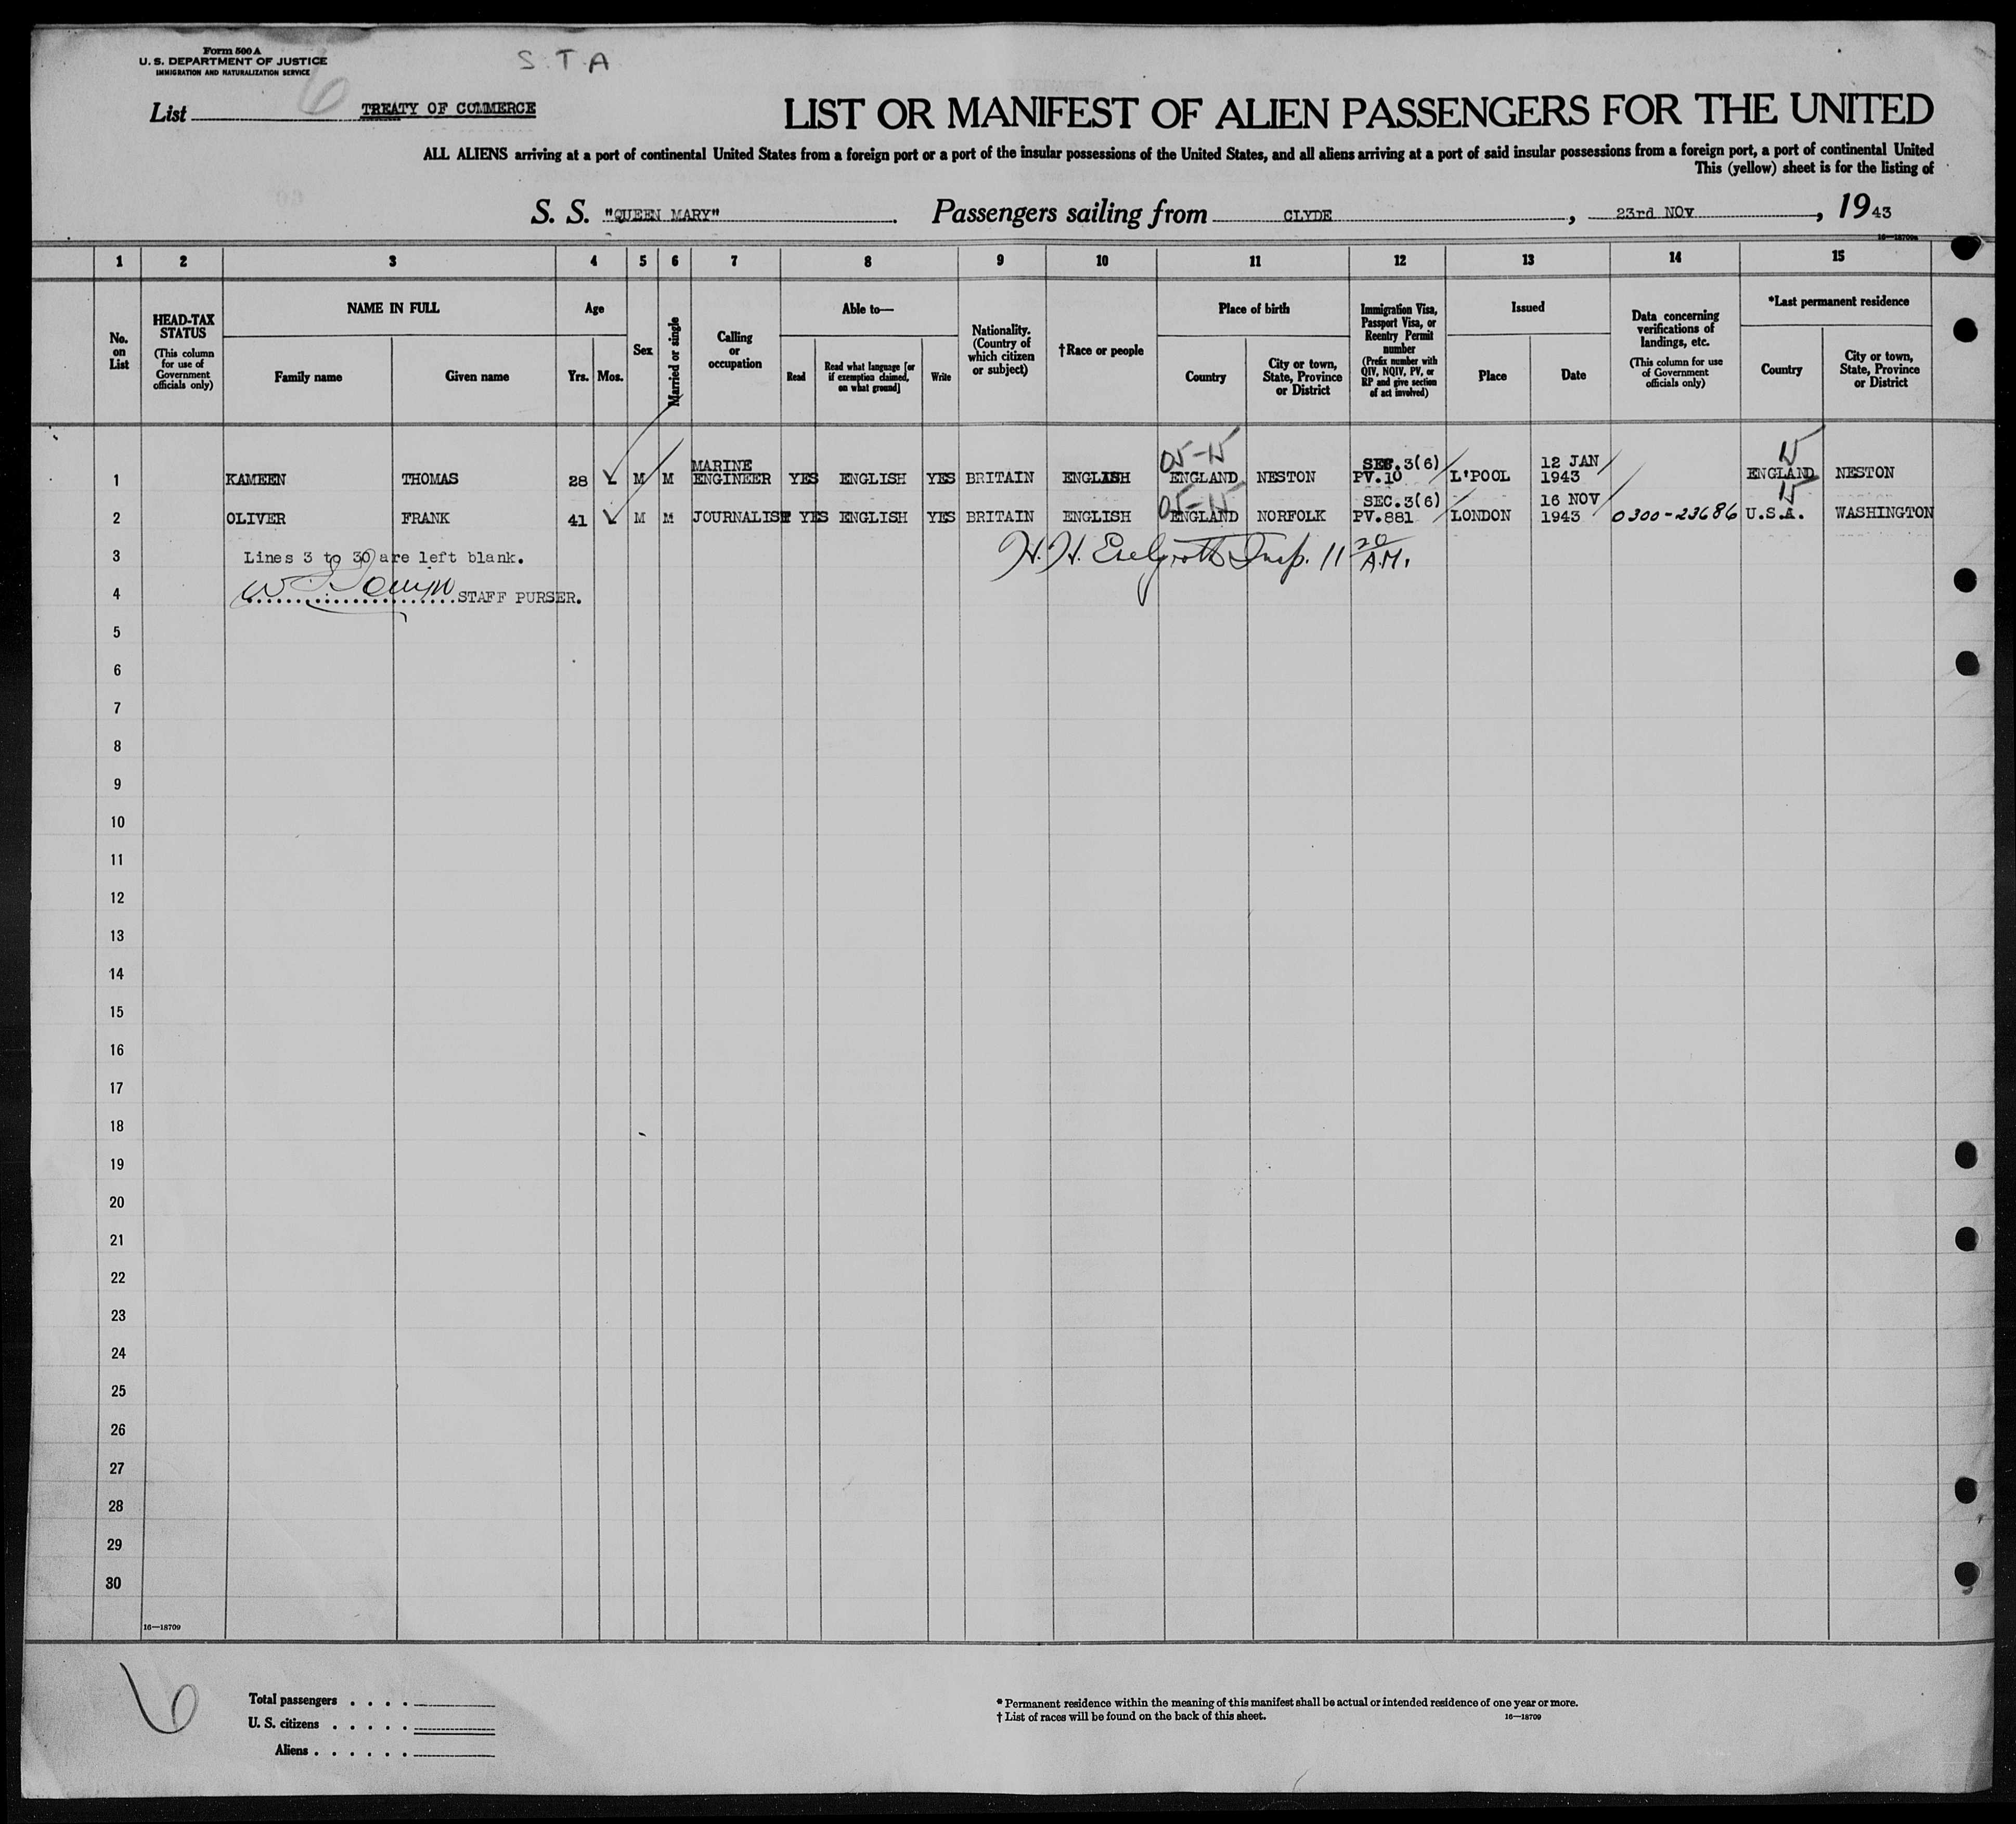 Form 500 A
U. S. DEPARTMENT OF JUSTICE
IMMIGRATION AND NATURALIZATION SERVICE
S.T.A
6
List TREATY OF COMMERCE
LIST OR MANIFEST OF ALIEN PASSENGERS FOR THE UNITED
ALL ALIENS arriving at a port of continental United States from a foreign port or a port of the insular possessions of the United States, and all aliens arriving at a port of said insular possessions from a foreign port, a port of continental United
This (yellow) sheet is for the listing of
S. S. "QUEEN MARY". Passengers sailing from CLYDE, 23rd NOV, 1943
1 2 3 4 5 6 7 8 9 10 11 12 13 14 15
No. on List
HEAD-TAX STATUS
(This column for use of Government officials only)
NAME IN FULL
Family name Given name
Age
Yrs. Mos.
Sex
Married or single
Calling or occupation
Able to—
Read
Read what language [or if exemption claimed, on what ground]
Write
Nationality. (Country of which citizen or subject)
†Race or people
Place of birth
Country
City or town, State, Province or District
Immigration Visa, Passport Visa, or Reentry Permit number
(Prefix number with QIV, NQIV, PV, or RP and give section of act involved)
Issued
Place Date
Data concerning verifications of landings, etc.
(This column for use of Government officials only)
*Last permanent residence
Country
City or town, State, Province or District
05-15 15
MARINE SEC.3(6) 12 JAN
1 KAMEEN THOMAS 28 M M ENGINEER YES ENGLISH YES BRITAIN ENGLISH ENGLAND NESTON PV.10 L'POOL 1943 ENGLAND NESTON
05-15 SEC.3(6) 16 NOV 15
2 OLIVER FRANK 41 M M JOURNALIST YES ENGLISH YES BRITAIN ENGLISH ENGLAND NORFOLK PV.881 LONDON 1943 0300-23686 U.S.A. WASHINGTON
3 Lines 3 to 30 are left blank. H. H. Insp. 11 20 A.M.
4 STAFF PURSER.
5
6
7
8
9
10
11
12
13
14
15
16
17
18
19
20
21
22
23
24
25
26
27
28
29
30
16—18709
6
Total passengers . . . .
U. S. citizens . . . . .
Aliens . . . . . .
* Permanent residence within the meaning of this manifest shall be actual or intended residence of one year or more.
† List of races will be found on the back of this sheet. 16—18709